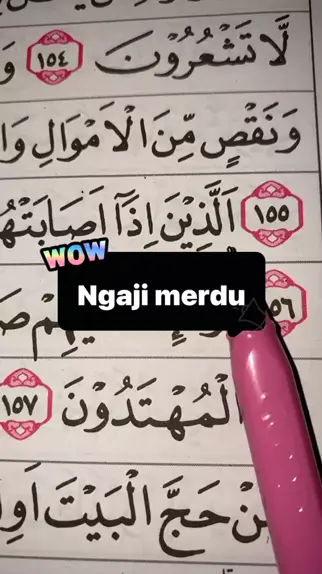 لَّا تَشْعُرُوْنَ ١٥٤
وَنَقْصٍ مِّنَ الْاَمْوَالِ
١٥٥ الَّذِيْنَ اِذَآ اَصَابَتْهُ
WOW
Ngaji merdu
الْمُهْتَدُوْنَ ١٥٧
حَجَّ الْبَيْتَ اَوِ